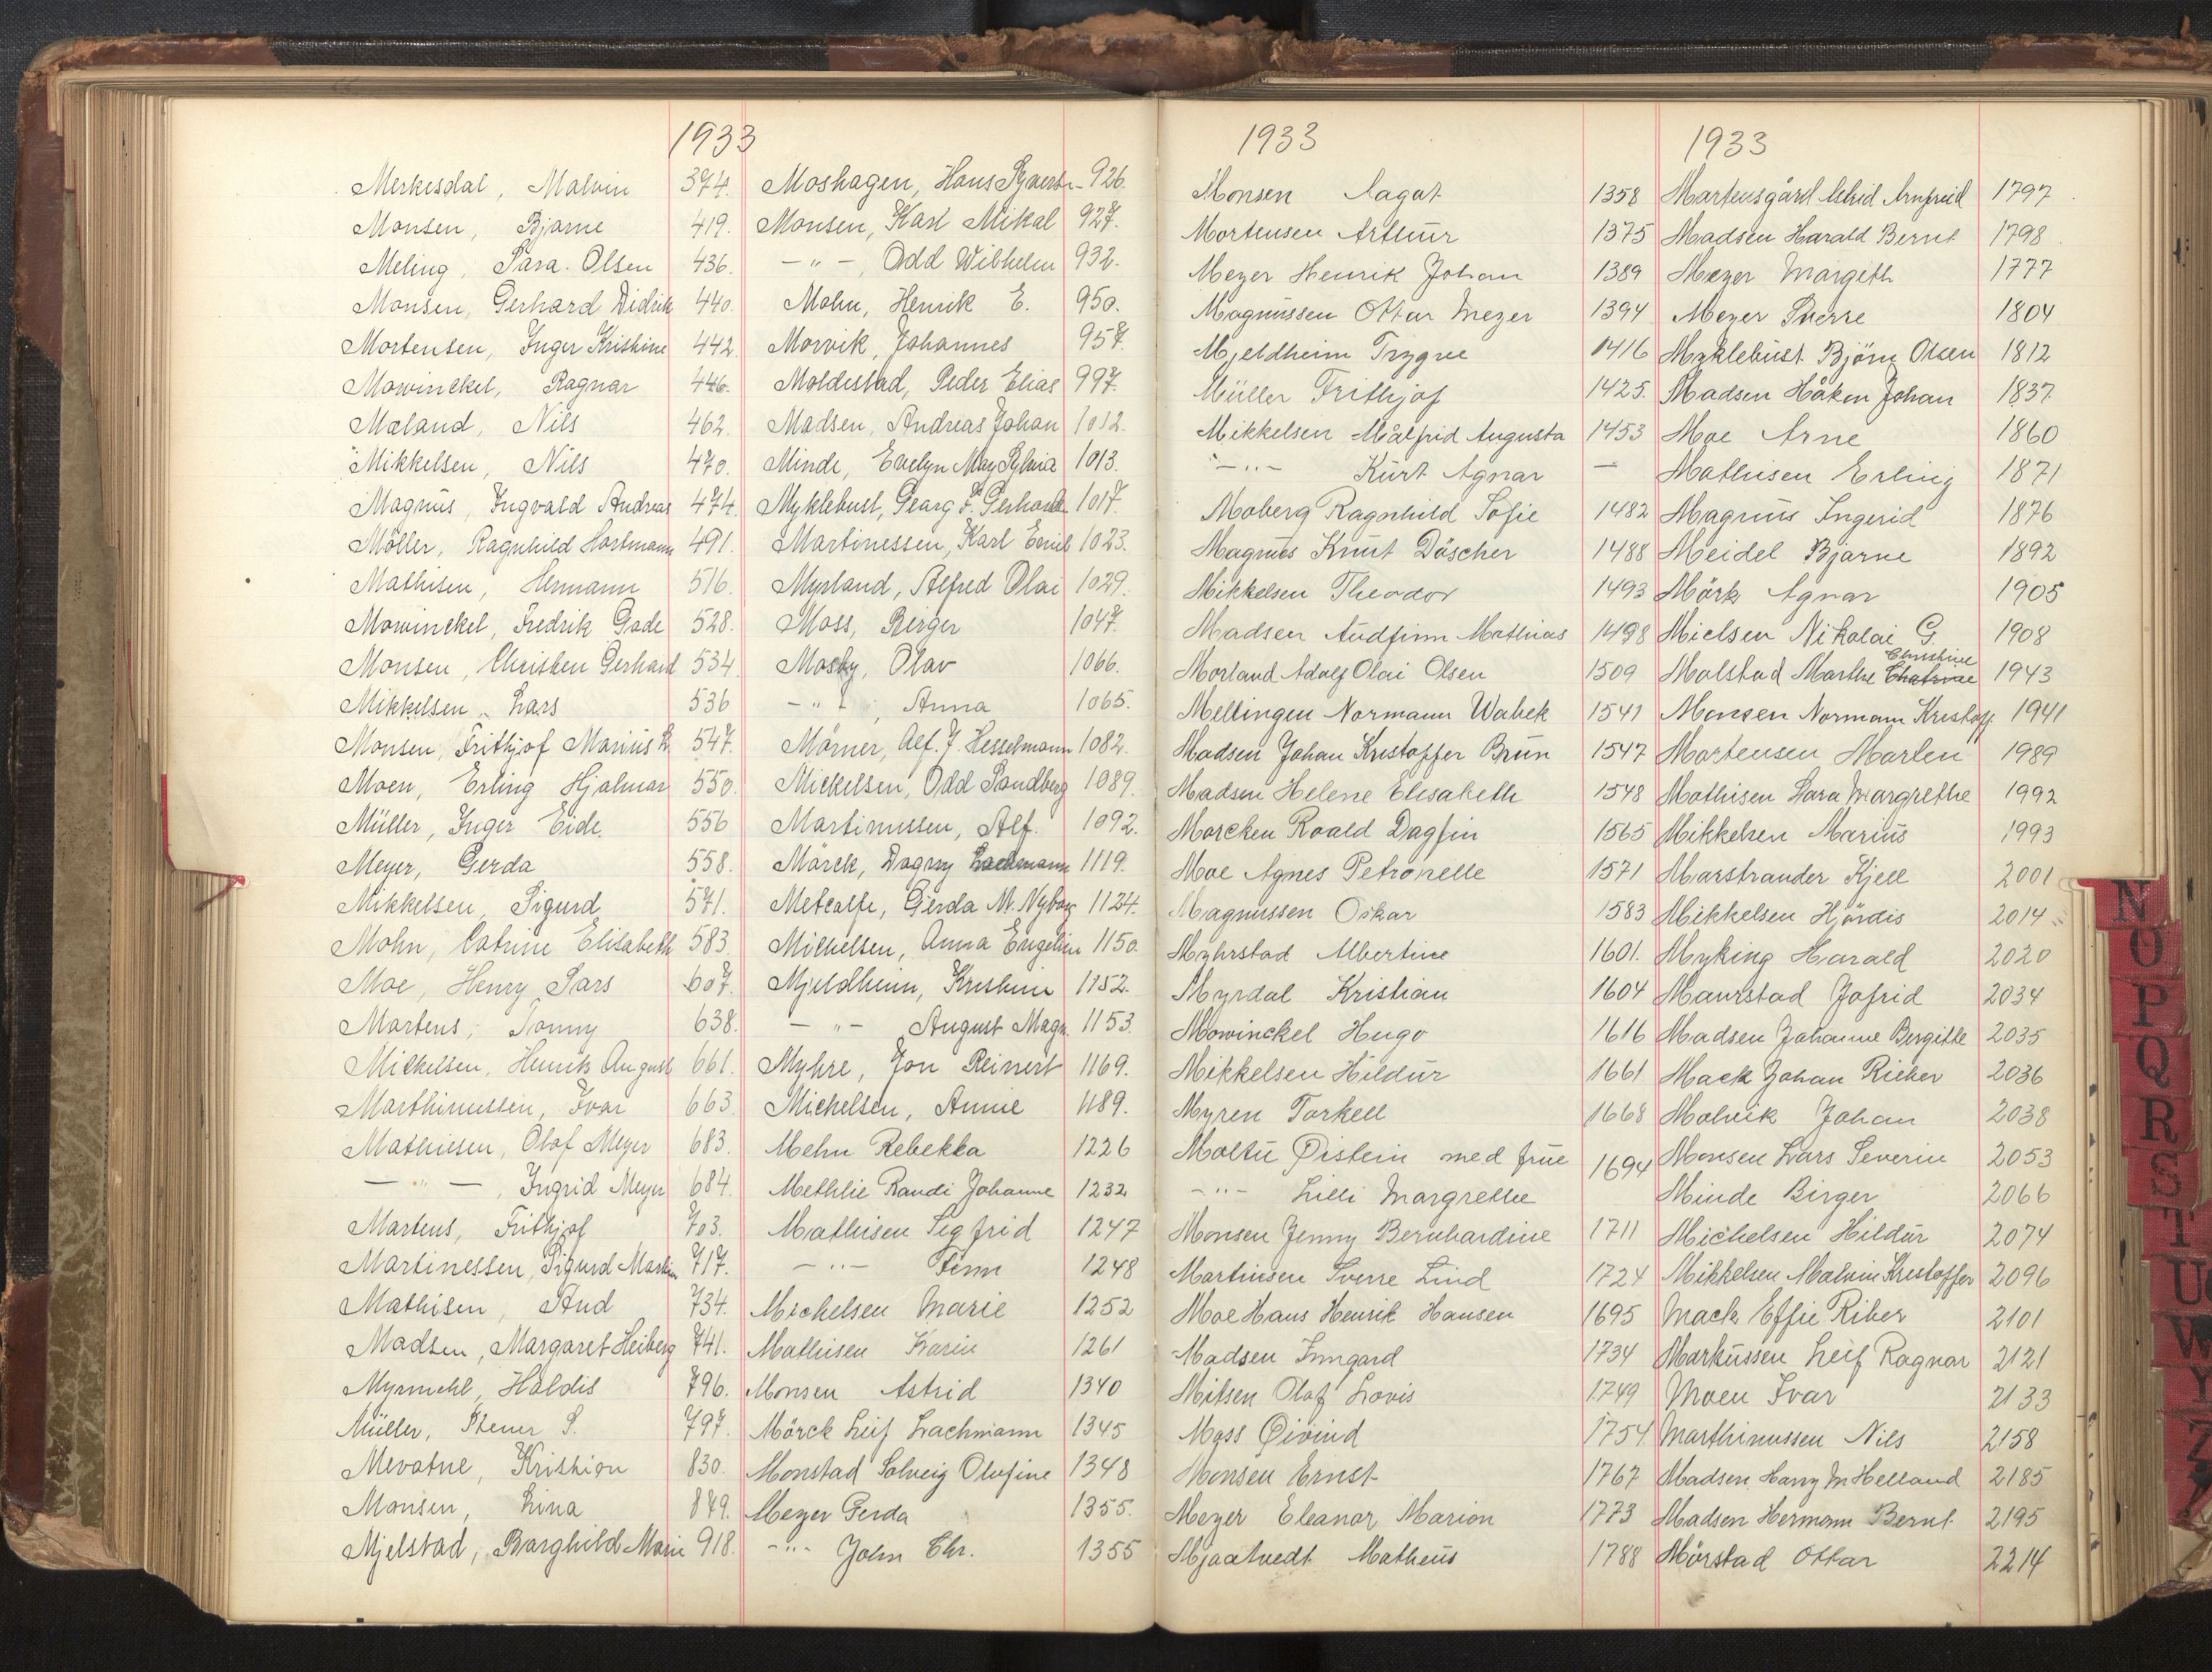 1933
Merkesdal, Malvin 374.
Monsen, Bjarne 419.
Meling, Sara Olsen 436.
Monsen, Gerhard Didrik 440.
Mortensen, Inger Kristine 442.
Mowinckel, Ragnar 446.
Mæland, Nils 462.
Mikkelsen, Nils 470.
Magnus, Ingvald Andreas 474.
Möller, Ragnhild Hartmann 491.
Mathisen, Hermann 516.
Mowinckel, Fredrik Gade 528.
Monsen, Christen Gerhard 534
Mikkelsen, Lars 536
Monsen, Frithjof Marius 547.
Moen, Erling Hjalmar 550.
Müller, Inger Eide. 556
Meyer, Gerda 558.
Mikkelsen, Sigurd 571.
Mohn, Catrine Elisabeth 583.
Moe, Henry Lars 607.
Martens, Tonny 638.
Mickelsen, Henrik August 661.
Marthinussen, Ivar 663
Mathiesen, Olaf Meyer 683.
— " —, Ingrid Meyer 684.
Martens, Frithjof 703.
Martinessen, Sigurd Martin 717.
Mathisen, Aud 734.
Madsen, Margaret Heiberg 741.
Myrmehl, Haldis 796.
Müller, Stener S. 797.
Mevatne, Kristian 830.
Monsen, Lina 849.
Mjelstad, Borghild Marie 918.
Moshagen, Hans 926.
Monsen, Karl Mikal 927.
— " —, Odd Wilhelm 932.
Mohn, Henrik E. 950.
Morvik, Johannes 957.
Moldestad, Peder Elias 997.
Madsen, Andreas Johan 1012.
Minde, Evelyn May Sylvia 1013.
Myklebust, Georg F. Gerhard 1017.
Martinessen, Karl Emil 1023.
Myrland, Alfred Olai 1029.
Moss, Birger 1047.
Mosby, Olav 1066.
— " —, Anna 1065.
Mörner, Alf. J. Hesselmann 1082.
Mickelsen, Odd Sandberg 1089.
Martinussen, Alf. 1092.
Mörck, Dagny Lachmann 1119.
Metcalfe, Gerda M. Nyborg 1124.
Michelsen, Anna Engeline 1150.
Mjeldheim, Kristine 1152.
— " — August Magn. 1153.
Myhre, Jon Reinert 1169.
Michelsen, Annie 1189.
Mehn Rebekka 1226
Methlie Randi Johanne 1232
Mathisen Sigfrid 1247
— " — Finn 1248
Michelsen Marie 1252
Mathisen Karin 1261
Monsen Astrid 1340
Mörck Leif Lachmann 1345
Monstad Solveig Olufine 1348
Meyer Gerda 1355.
— " — John Chr. 1355
1933
Monsen Aagot 1358
Mortensen Arthur 1375
Meyer Henrik Johan 1389
Magnussen Ottar Meyer 1394
Mjeldheim Trygve 1416
Müller Frithjof 1425.
Mikkelsen Målfrid Augusta 1453
— " — Kurt Agnar —
Moberg Ragnhild Sofie 1482
Magnus Knut Döscher 1488
Mikkelsen Theodor 1493
Madsen Audfinn Mathias 1498
Morland Adolf Olai Olsen 1509
Mellingen Normann Wabek 1541
Madsen Johan Kristoffer Brun 1547
Madsen Helene Elisabeth 1548
Morcken Roald Dagfin 1565
Moe Agnes Petronelle 1571
Magnussen Oskar 1583
Myhrstad Albertine 1601.
Myrdal Kristian 1604
Mowinckel Hugo 1616
Mikkelsen Hildur 1661
Myren Torkell 1668
Moltu Øistein med frue 1694
— " — Lilli Margrethe
Monsen Jenny Bernhardine 1711
Martinsen Sverre Lind 1724
Moe Hans Henrik Hansen 1695
Madsen Irmgard 1734
Milsen Olaf Lovis 1749
Moss Øivind 1754
Monsen Ernst 1767
Meyer Eleanor Marion 1773
Mjaatvedt Matheus 1788
1933
Martensgård Astrid Arnfrid 1797
Madsen Harald Bernt 1798
Meyer Margith 1777
Meyer Sverre 1804
Myklebust Björn Olsen 1812
Madsen Håkon Johan 1837
Moe Arne 1860
Mathisen Erling 1871
Magnus Ingerid 1876
Meidel Bjarne 1892
Mörk Agnar 1905
Mielsen Nikolai G. 1908
Christine
Molstad Marthe Chatrine 1943
Monsen Normann Kristoff. 1941
Mortensen Marlen 1989
Mathisen Lara Margrethe 1992
Mikkelsen Marius 1993
Marstrander Kjell 2001
Mikkelsen Hjördis 2014
Myking Harald 2020
Maurstad Jofrid 2034
Madsen Johanne Bergitte 2035
Mack Johan Rieber 2036
Molvik Johan 2038
Monsen Lars Severin 2053
Minde Birger 2066
Michelsen Hildur 2074
Mikkelsen Malvin Kristoffer 2096
Mack Effie Riber 2101
Markussen Leif Ragnar 2121
Moen Ivar 2133
Marthinussen Nils 2158
Madsen Harry M Helland 2185
Madsen Hermann Bernt 2195
Mörstad Ottar 2214
N
O
P
Q
R
S
T
U
W
Y
Z